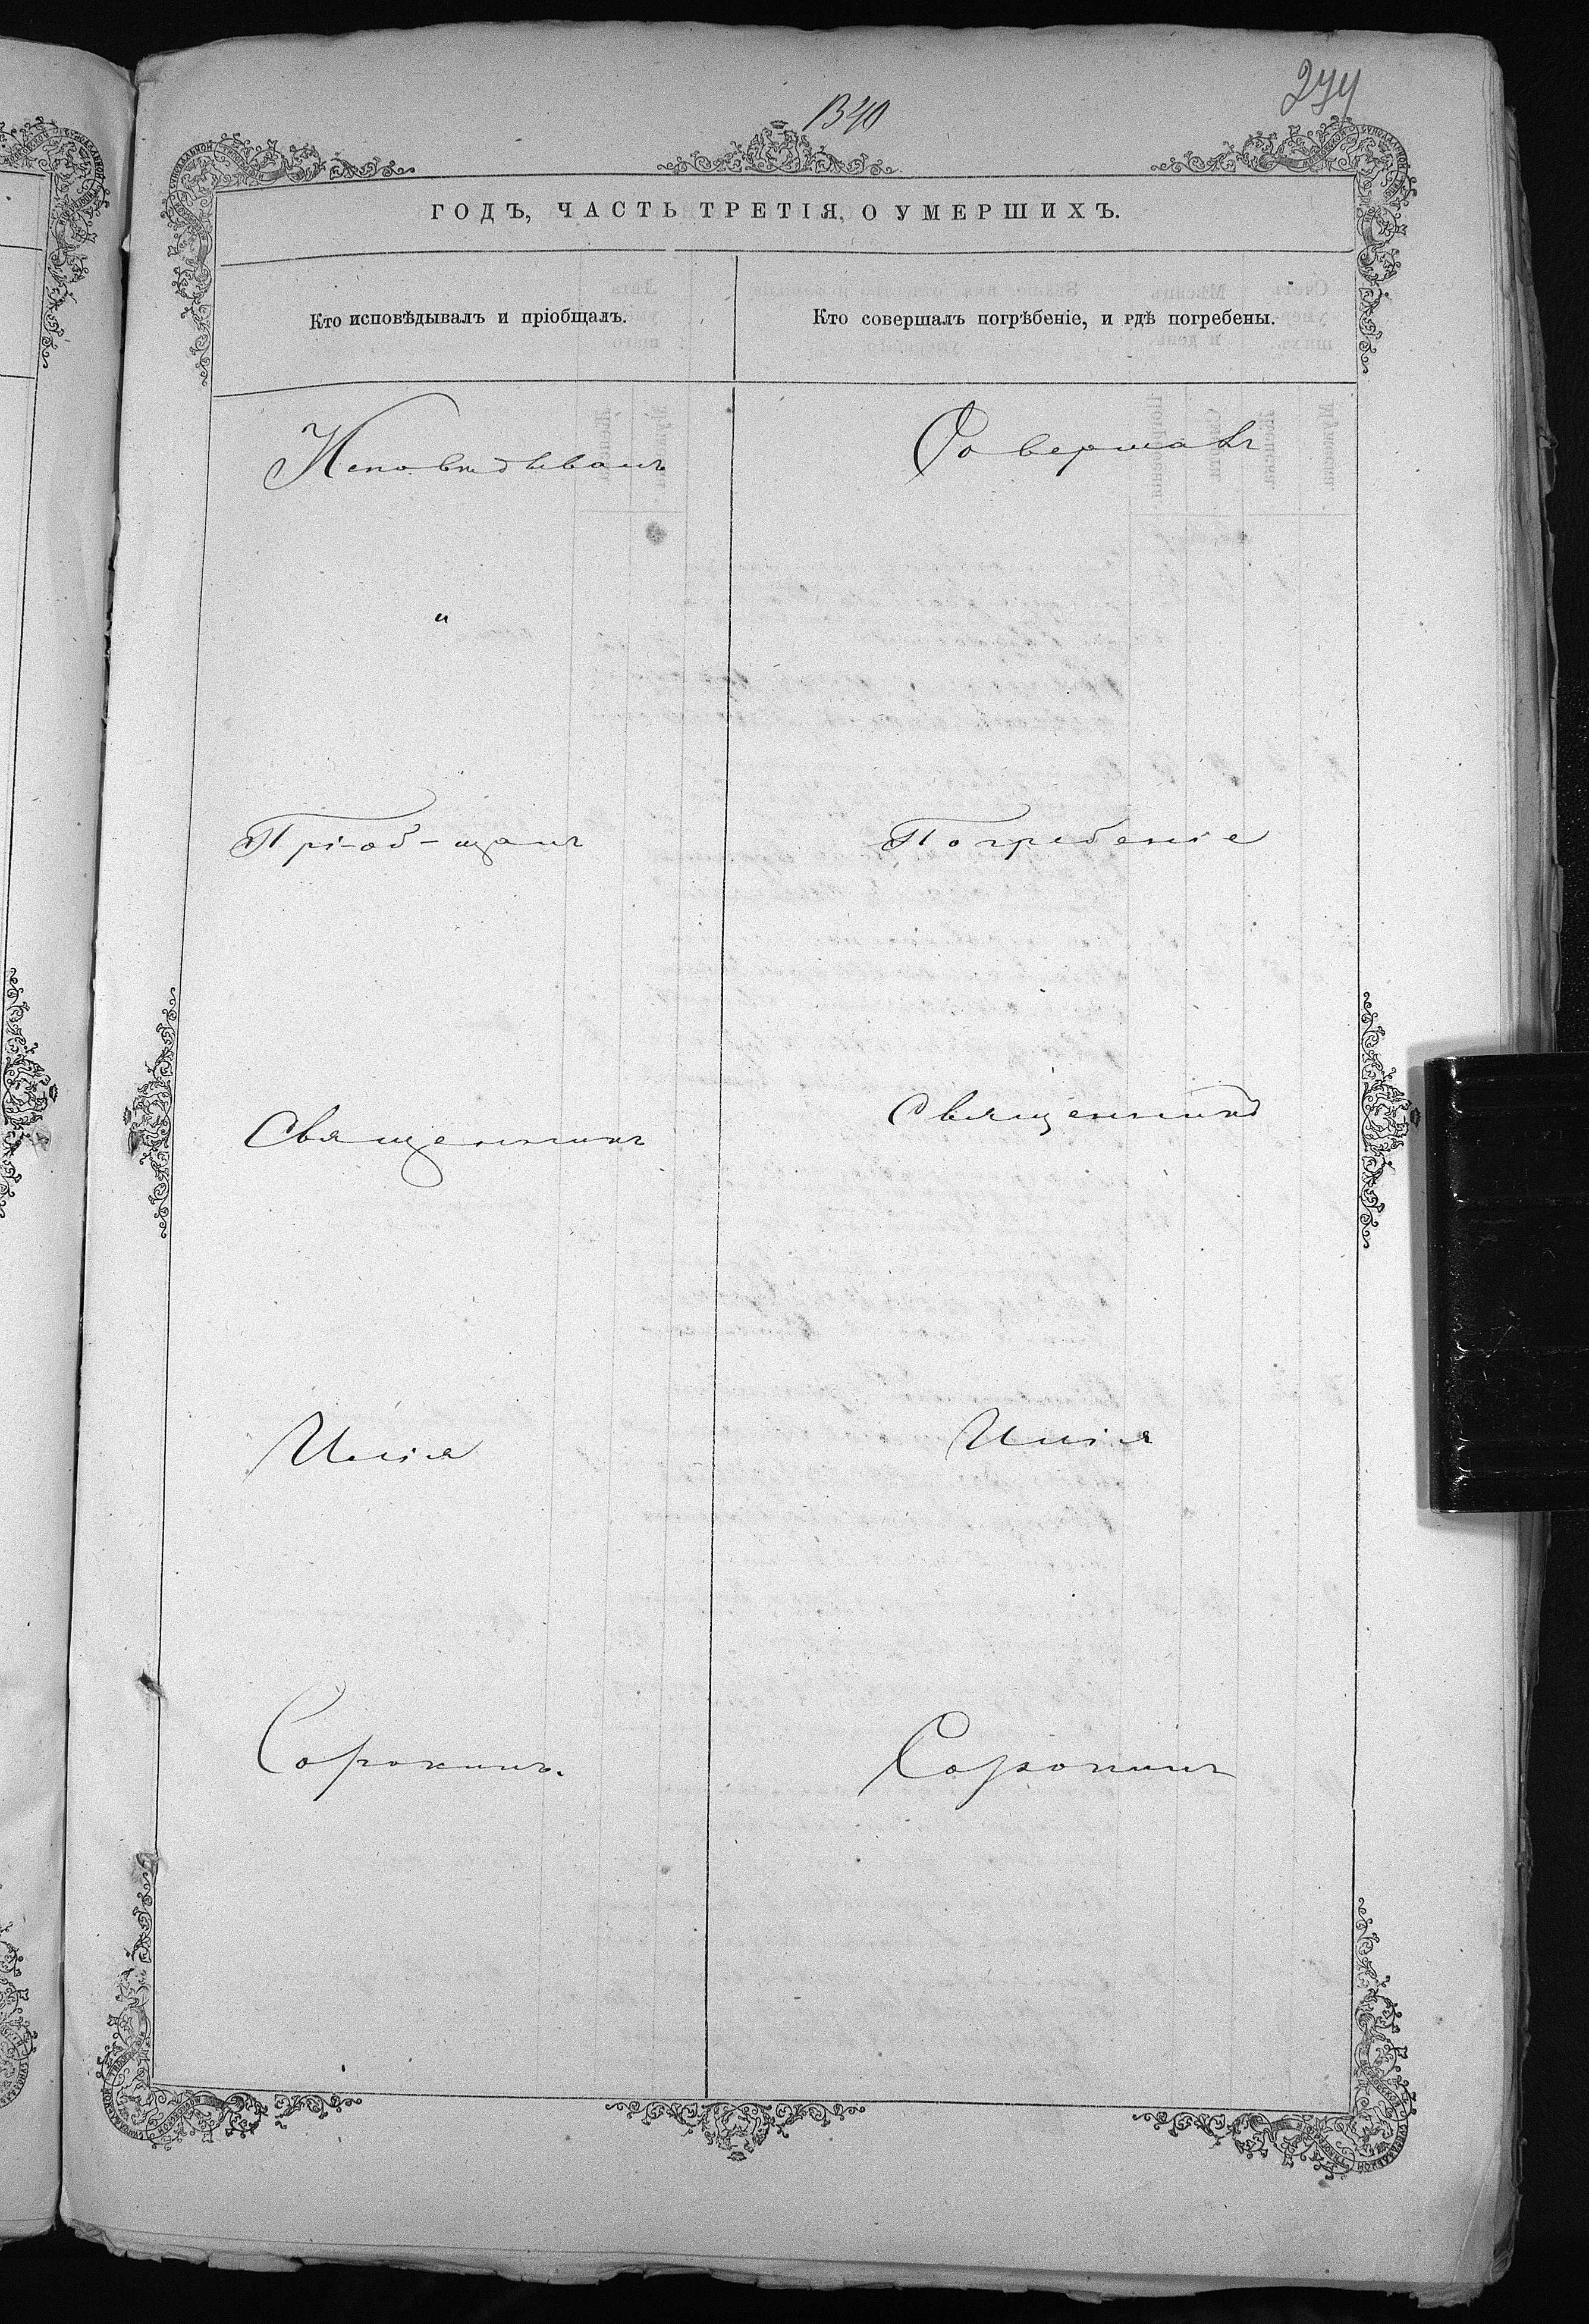 1340
274
ГОДЪ, ЧАСТЬ ТРЕТІЯ, О УМЕРШИХЪ.
Кто исповѣдывалъ и пріобщалъ.
Кто совершалъ погрѣбеніе, и гдѣ погребены.
Исповѣдывалъ
и
Пріоб-щалъ
Священникъ
Илія
Сорокинъ.
Совершалъ
Погребеніе
Священникъ
Илія
Сорокинъ